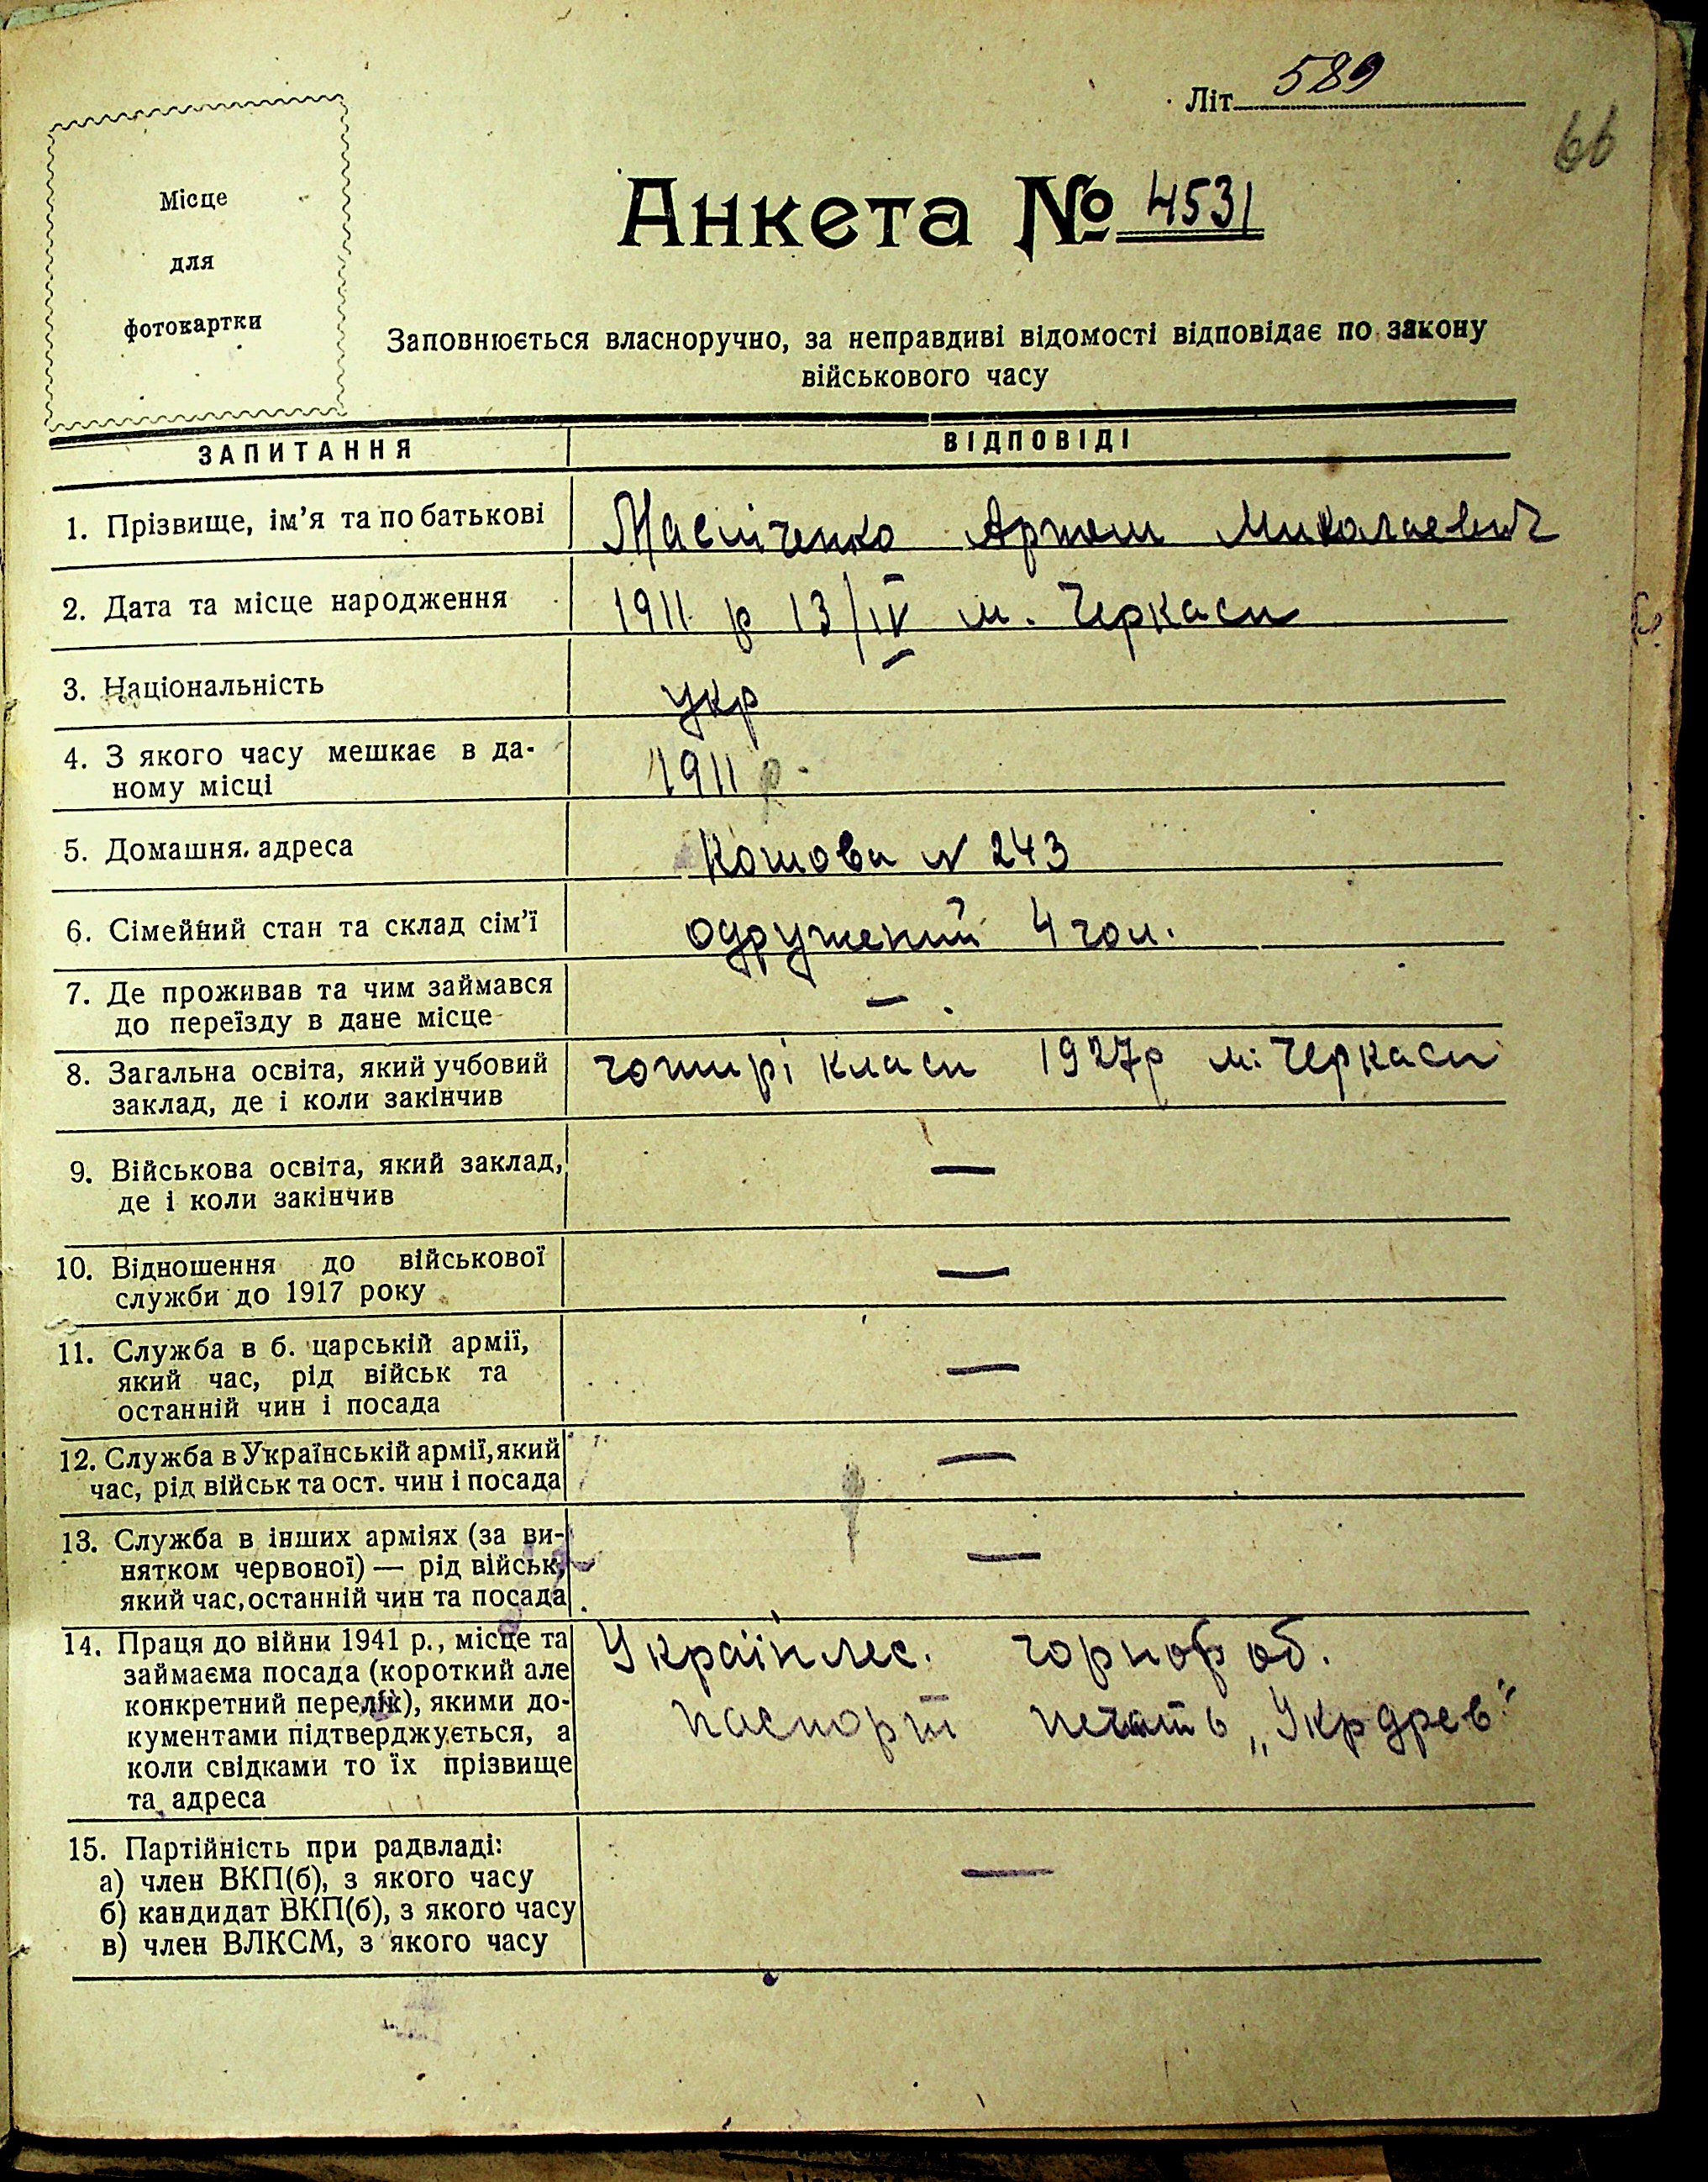 Літ. 589
66
Місце
для
фотокартки
Анкета № 4531
Заповнюється власноручно, за неправдиві відомості відповідає по закону
військового часу
ЗАПИТАННЯ ВІДПОВІДІ
1. Прізвище, ім'я та по батькові Артем Миколаевич
2. Дата та місце народження 1911 р 13/IV м. Черкаси
3. Національність укр
4. З якого часу мешкає в да-
ному місці 1911 р.
5. Домашня адреса Кошова N 243
6. Сімейний стан та склад сім'ї одружений 4 чол.
7. Де проживав та чим займався —
до переїзду в дане місце
8. Загальна освіта, який учбовий чотирі класи 1927р м. Черкаси
заклад, де і коли закінчив
9. Військова освіта, який заклад, —
де і коли закінчив
10. Відношення до військової —
служби до 1917 року
11. Служба в б. царській армії,
який час, рід військ та —
останній чин і посада
12. Служба в Українській армії, який —
час, рід військ та ост. чин і посада
13. Служба в інших арміях (за ви-
нятком червоної) — рід військ, —
який час, останній чин та посада
14. Праця до війни 1941 р., місце та Українлес. чорнороб.
займаєма посада (короткий але
конкретний перелік), якими до- паспорт печать „Укрдрев"
кументами підтверджується, а
коли свідками то їх прізвище
та адреса
15. Партійність при радвладі:
а) член ВКП(б), з якого часу —
б) кандидат ВКП(б), з якого часу
в) член ВЛКСМ, з якого часу